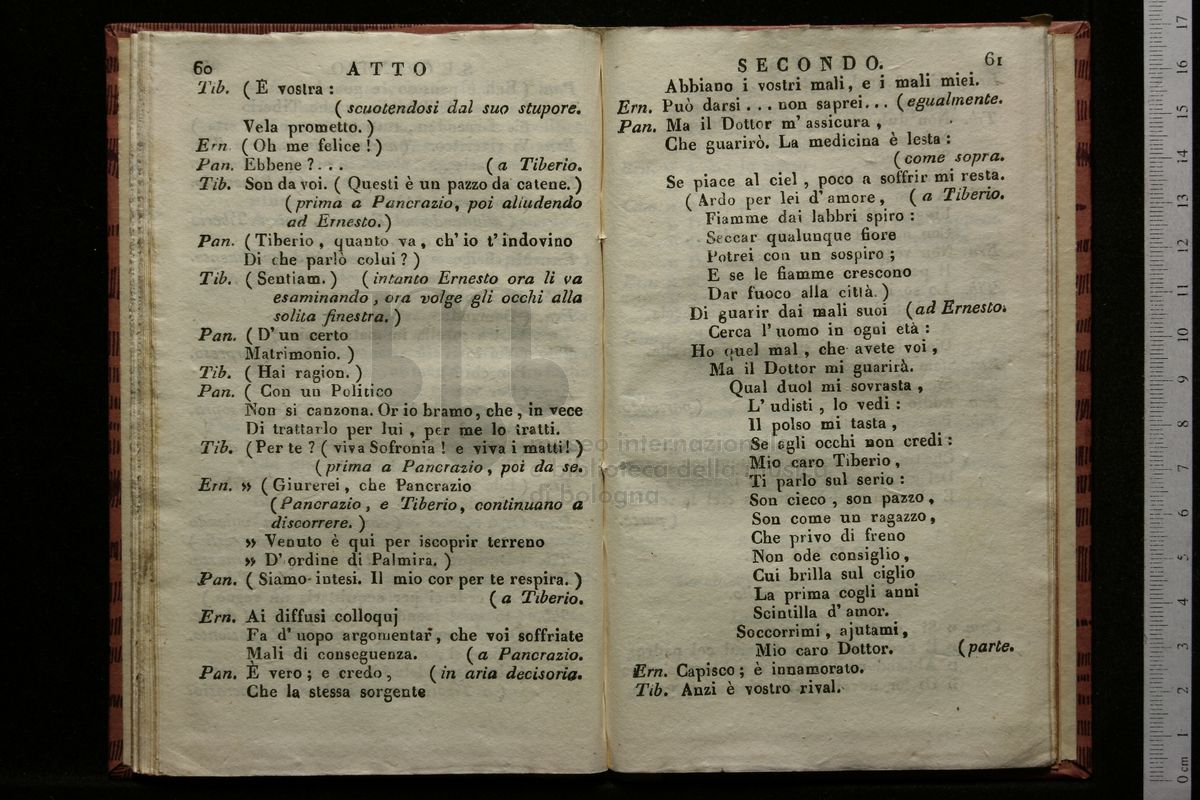 60 ATTO
Tib. (È vostra:
(scuotendosi dal suo stupore.
Vela prometto.)
Ern. (Oh me felice!)
Pan. Ebbene?... (a Tiberio.
Tib. Son da voi. (Questi è un pazzo da catene.)
(prima a Pancrazio, poi aliudendo
ad Ernesto.)
Pan. (Tiberio, quanto va, ch'io t'indovino
Di che parlò colui?)
Tib. (Sentiam.) (intanto Ernesto ora li va
esaminando, ora volge gli occhi alla
solita finestra.)
Pan. (D'un certo
Matrimonio.)
Tib. (Hai ragion.)
Pan. (Con un Politico
Non si canzona. Or io bramo, che, in vece
Di trattarlo per lui, per me lo tratti.
Tib. (Per te? (viva Sofronia! e viva i matti!)
(prima a Pancrazio, poi da se.
Ern. » (Giurerei, che Pancrazio
(Pancrazio, e Tiberio, continuano a
discorrere.)
» Venuto è qui per iscoprir terreno
» D'ordine di Palmira.)
Pan. (Siamo intesi. Il mio cor per te respira.)
(a Tiberio.
Ern. Ai diffusi colloquj
Fa d'uopo argomentar, che voi soffriate
Mali di conseguenza. (a Pancrazio.
Pan. È vero; e credo, (in aria decisoria.
Che la stessa sorgente
SECONDO. 61
Abbiano i vostri mali, e i mali miei.
Ern. Può darsi... non saprei... (egualmente.
Pan. Ma il Dottor m'assicura,
Che guarirò. La medicina è lesta:
(come sopra.
Se piace al ciel, poco a soffrir mi resta.
(Ardo per lei d'amore, (a Tiberio.
Fiamme dai labbri spiro:
Seccar qualunque fiore
Potrei con un sospiro;
E se le fiamme crescono
Dar fuoco alla città.)
Di guarir dai mali suoi (ad Ernesto.
Cerca l'uomo in ogni età:
Ho quel mal, che avete voi,
Ma il Dottor mi guarirà.
Qual duol mi sovrasta,
L'udisti, lo vedi:
Il polso mi tasta,
Se agli occhi non credi:
Mio caro Tiberio,
Ti parlo sul serio:
Son cieco, son pazzo,
Son come un ragazzo,
Che privo di freno
Non ode consiglio,
Cui brilla sul ciglio
La prima cogli anni
Scintilla d'amor.
Soccorrimi, ajutami,
Mio caro Dottor. (parte.
Ern. Capisco; è innamorato.
Tib. Anzi è vostro rival.
museo internazionale
e biblioteca della musica
di bologna
0 cm 1 2 3 4 5 6 7 8 9 10 11 12 13 14 15 16 17